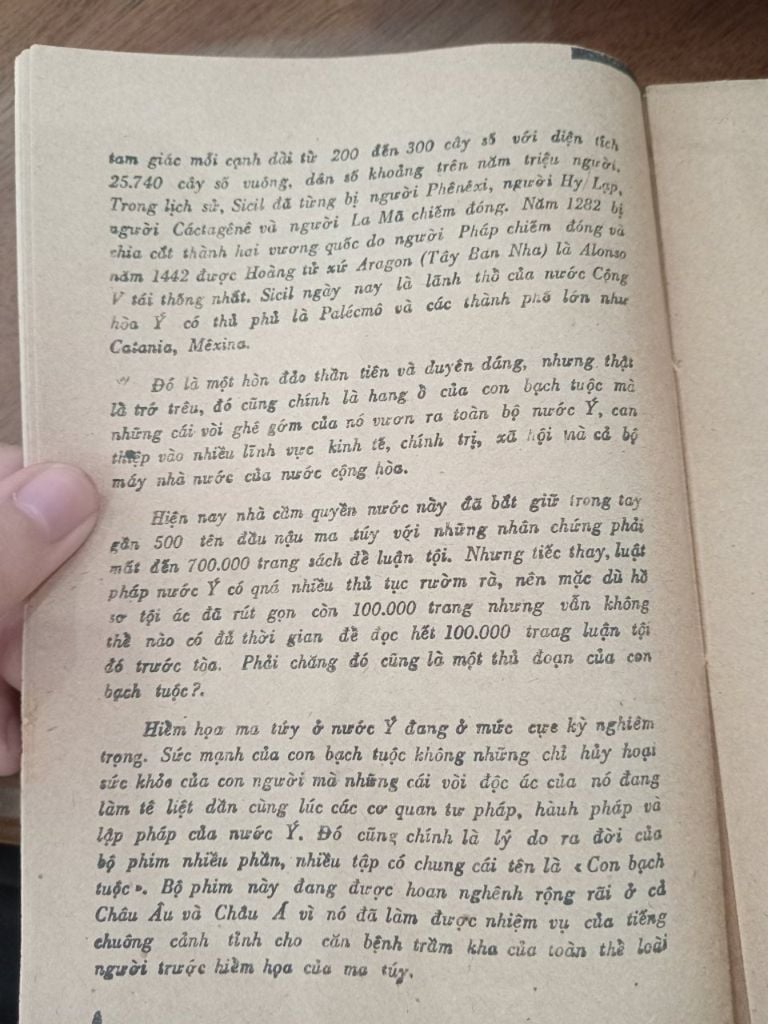 tam giác mỗi cạnh dài từ 200 đến 300 cây số với diện tích
25.740 cây số vuông, dân số khoảng trên năm triệu người.
Trong lịch sử, Sicil đã từng bị người Phênêxi, người Hy Lạp,
người Cáctagênê và người La Mã chiếm đóng. Năm 1282 bị
chia cắt thành hai vương quốc do người Pháp chiếm đóng và
năm 1442 được Hoàng tử xứ Aragon (Tây Ban Nha) là Alonso
V tái thống nhất. Sicil ngày nay là lãnh thổ của nước Cộng
hòa Ý có thủ phủ là Palécmô và các thành phố lớn như
Catania, Mêxina.
Đó là một hòn đảo thần tiên và duyên dáng, nhưng thật
là trớ trêu, đó cũng chính là hang ổ của con bạch tuộc mà
những cái vòi ghê gớm của nó vươn ra toàn bộ nước Ý, can
thiệp vào nhiều lĩnh vực kinh tế, chính trị, xã hội mà cả bộ
máy nhà nước của nước cộng hòa.
Hiện nay nhà cầm quyền nước này đã bắt giữ trong tay
gần 500 tên đầu nậu ma túy với những nhân chứng phải
mất đến 700.000 trang sách để luận tội. Nhưng tiếc thay, luật
pháp nước Ý có qná nhiều thủ tục rườm rà, nên mặc dù hồ
sơ tội ác đã rút gọn còn 100.000 trang nhưng vẫn không
thể nào có đủ thời gian để đọc hết 100.000 traag luận tội
đó trước tòa. Phải chăng đó cũng là một thủ đoạn của con
bạch tuộc?.
Hiểm họa ma túy ở nước Ý đang ở mức cực kỳ nghiêm
trọng. Sức mạnh của con bạch tuộc không những chỉ hủy hoại
sức khỏe của con người mà những cái vòi độc ác của nó đang
làm tê liệt dần cùng lúc các cơ quan tư pháp, hàuh pháp và
lập pháp của nước Ý. Đó cũng chính là lý do ra đời của
bộ phim nhiều phần, nhiều tập có chung cái tên là «Con bạch
tuộc». Bộ phim này đang được hoan nghênh rộng rãi ở cả
Châu Âu và Châu Á vì nó đã làm được nhiệm vụ của tiếng
chuông cảnh tỉnh cho căn bệnh trầm kha của toàn thể loài
người trước hiểm họa của ma túy.